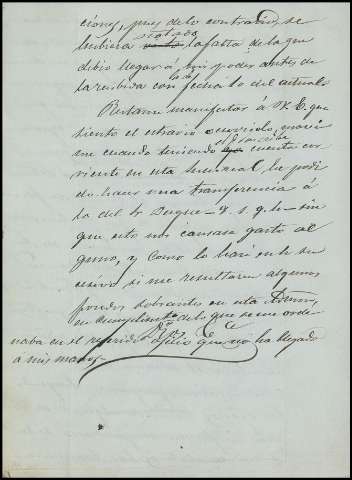 ciones, pues de lo contrario se
hubiera notado la falta de la que
debio llegar á mi poder antes de
la recibida con fecha 1º del actual.
Restame manifestar á V. E. que
siento el estravio ocurrido, y
me cuando teniendo cuenta cor
riente en esta sucursal, he podi
do hacer una transferencia á
la del Sr Duque sin
que esto nos causara gasto al
guno, y como lo haré en lo su
cesivo, si me resultaren algunos
fondos sobrantes en esta
en cumplimto de lo que se me orde
naba en el referido oficio que no ha llegado
á mis manos.